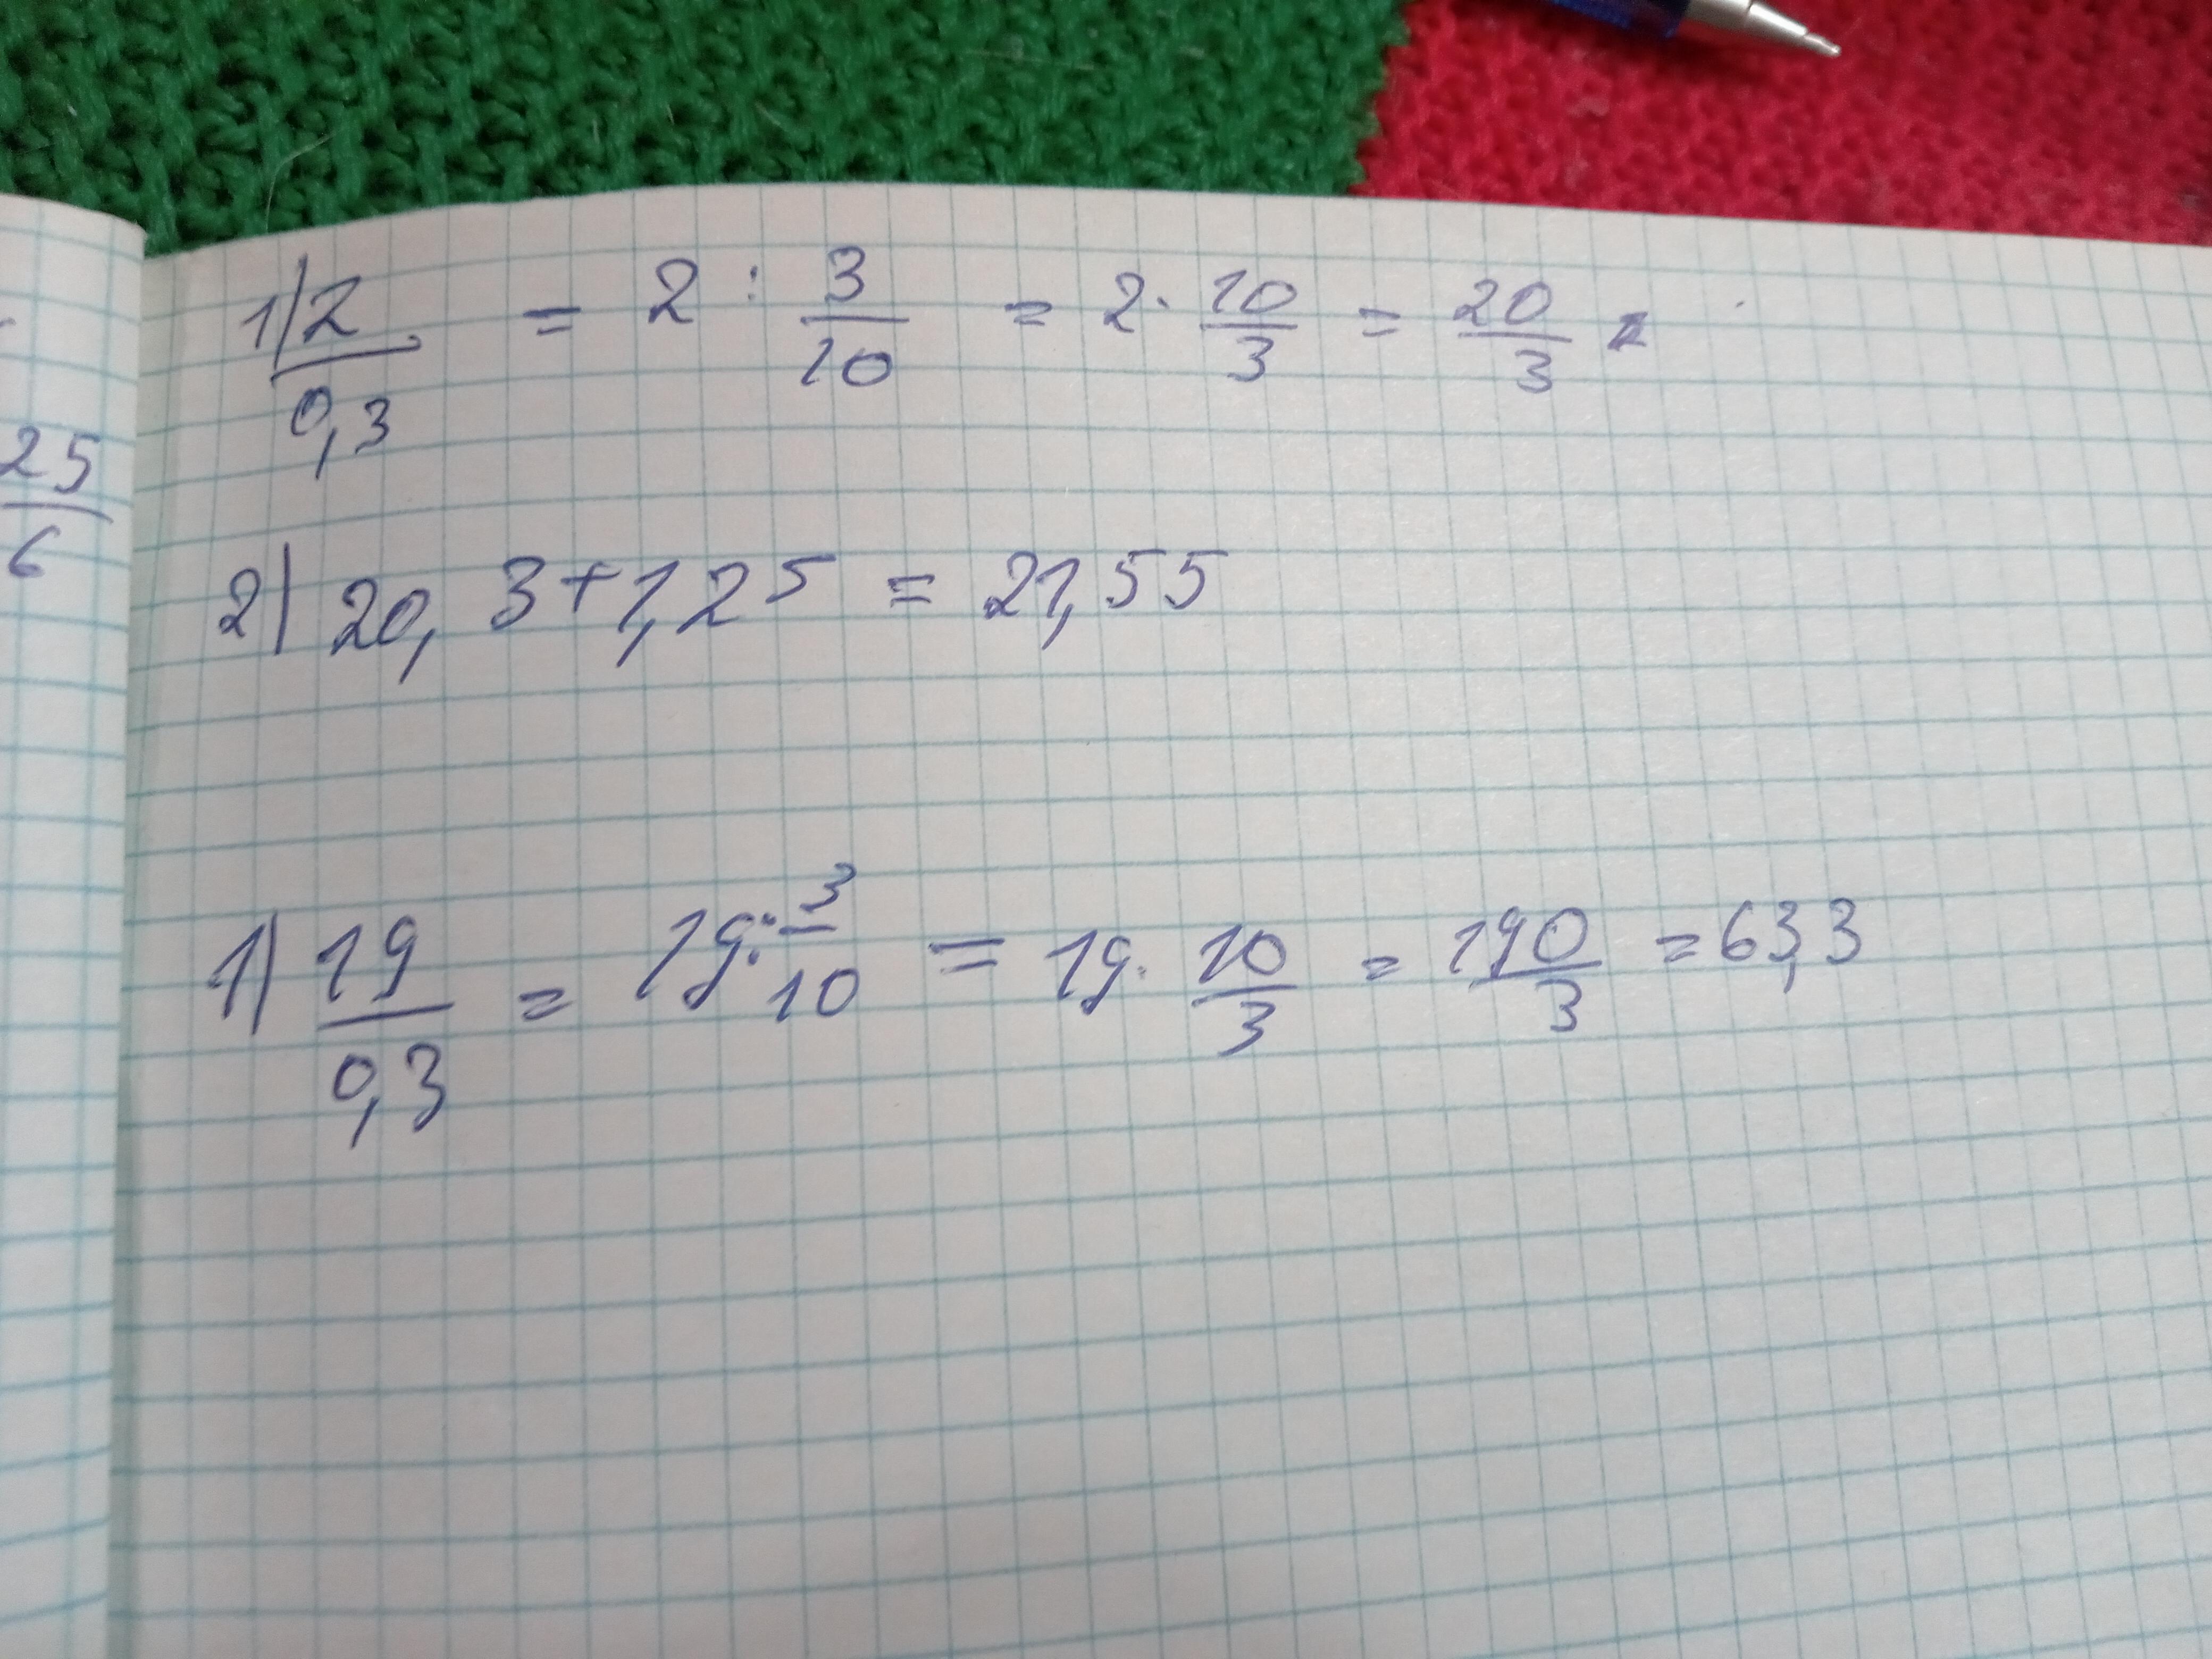 1) 2/0,3 = 2 : 3/10 = 2 · 10/3 = 20/3 =
25/6
2) 20,3 + 1,25 = 21,55
1) 19/0,3 = 19 : 3/10 = 19 · 10/3 = 190/3 = 63,3